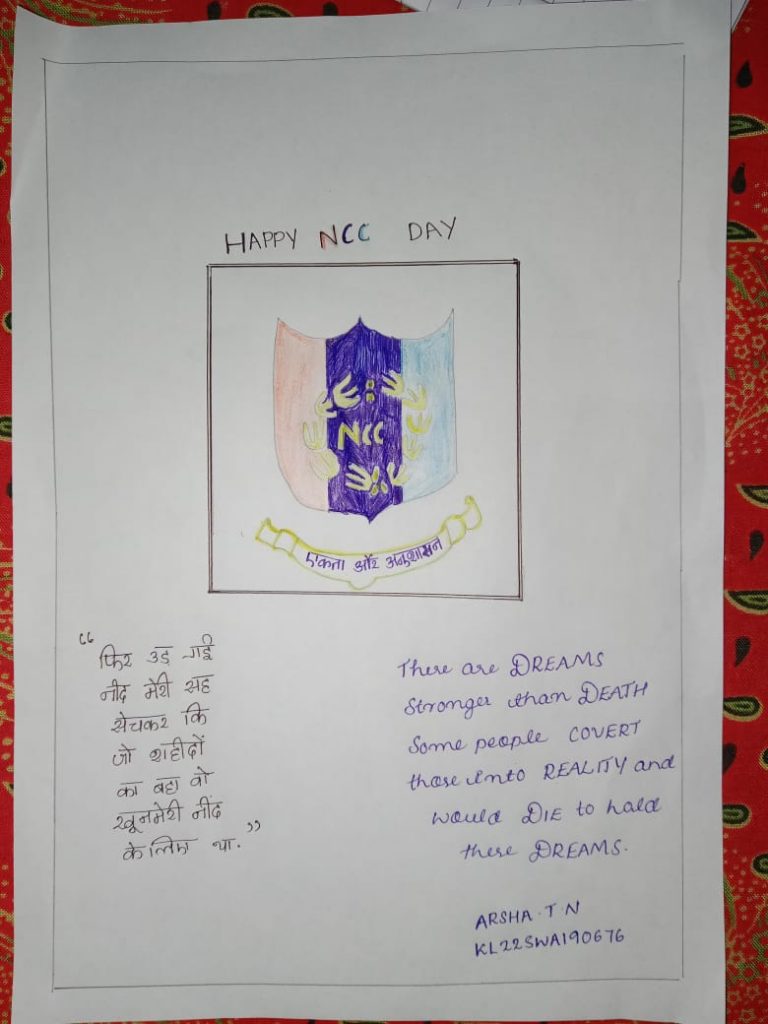 HAPPY NCC DAY
NCC
एकता और अनुशासन
“फिर उड़ गई
नींद मेरी सह
सेचकर कि
जो शहीदों
का बहा वो
खूनमेरी नींद
के लिए था.”
There are DREAMS
Stronger than DEATH
Some people COVERT
those into REALITY and
would DIE to hald
these DREAMS.
ARSHA.T.N
KL22SWA190676